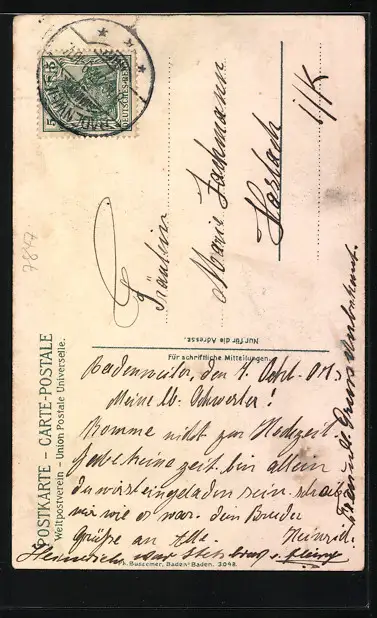 POSTKARTE – CARTE-POSTALE
Weltpostverein – Union Postale Universelle.
7847
5
DEUTSCHES
BADENWEILER
Fräulein
Marie Zachmann
Haslach
i/K
Nur für die Adresse.
Für schriftliche Mitteilungen.
Badenweiler, den 7.
Meine lb. Schwester!
Komme nicht zur Hochzeit.
Habe keine zeit bin allein
du wirst eingeladen sein schreibe
mir wie es war. dein Bruder
Grüße an Alle. Heinrich.
Heinrich war
u. Gruss Unbekannt.
Baden-Baden. 3048.